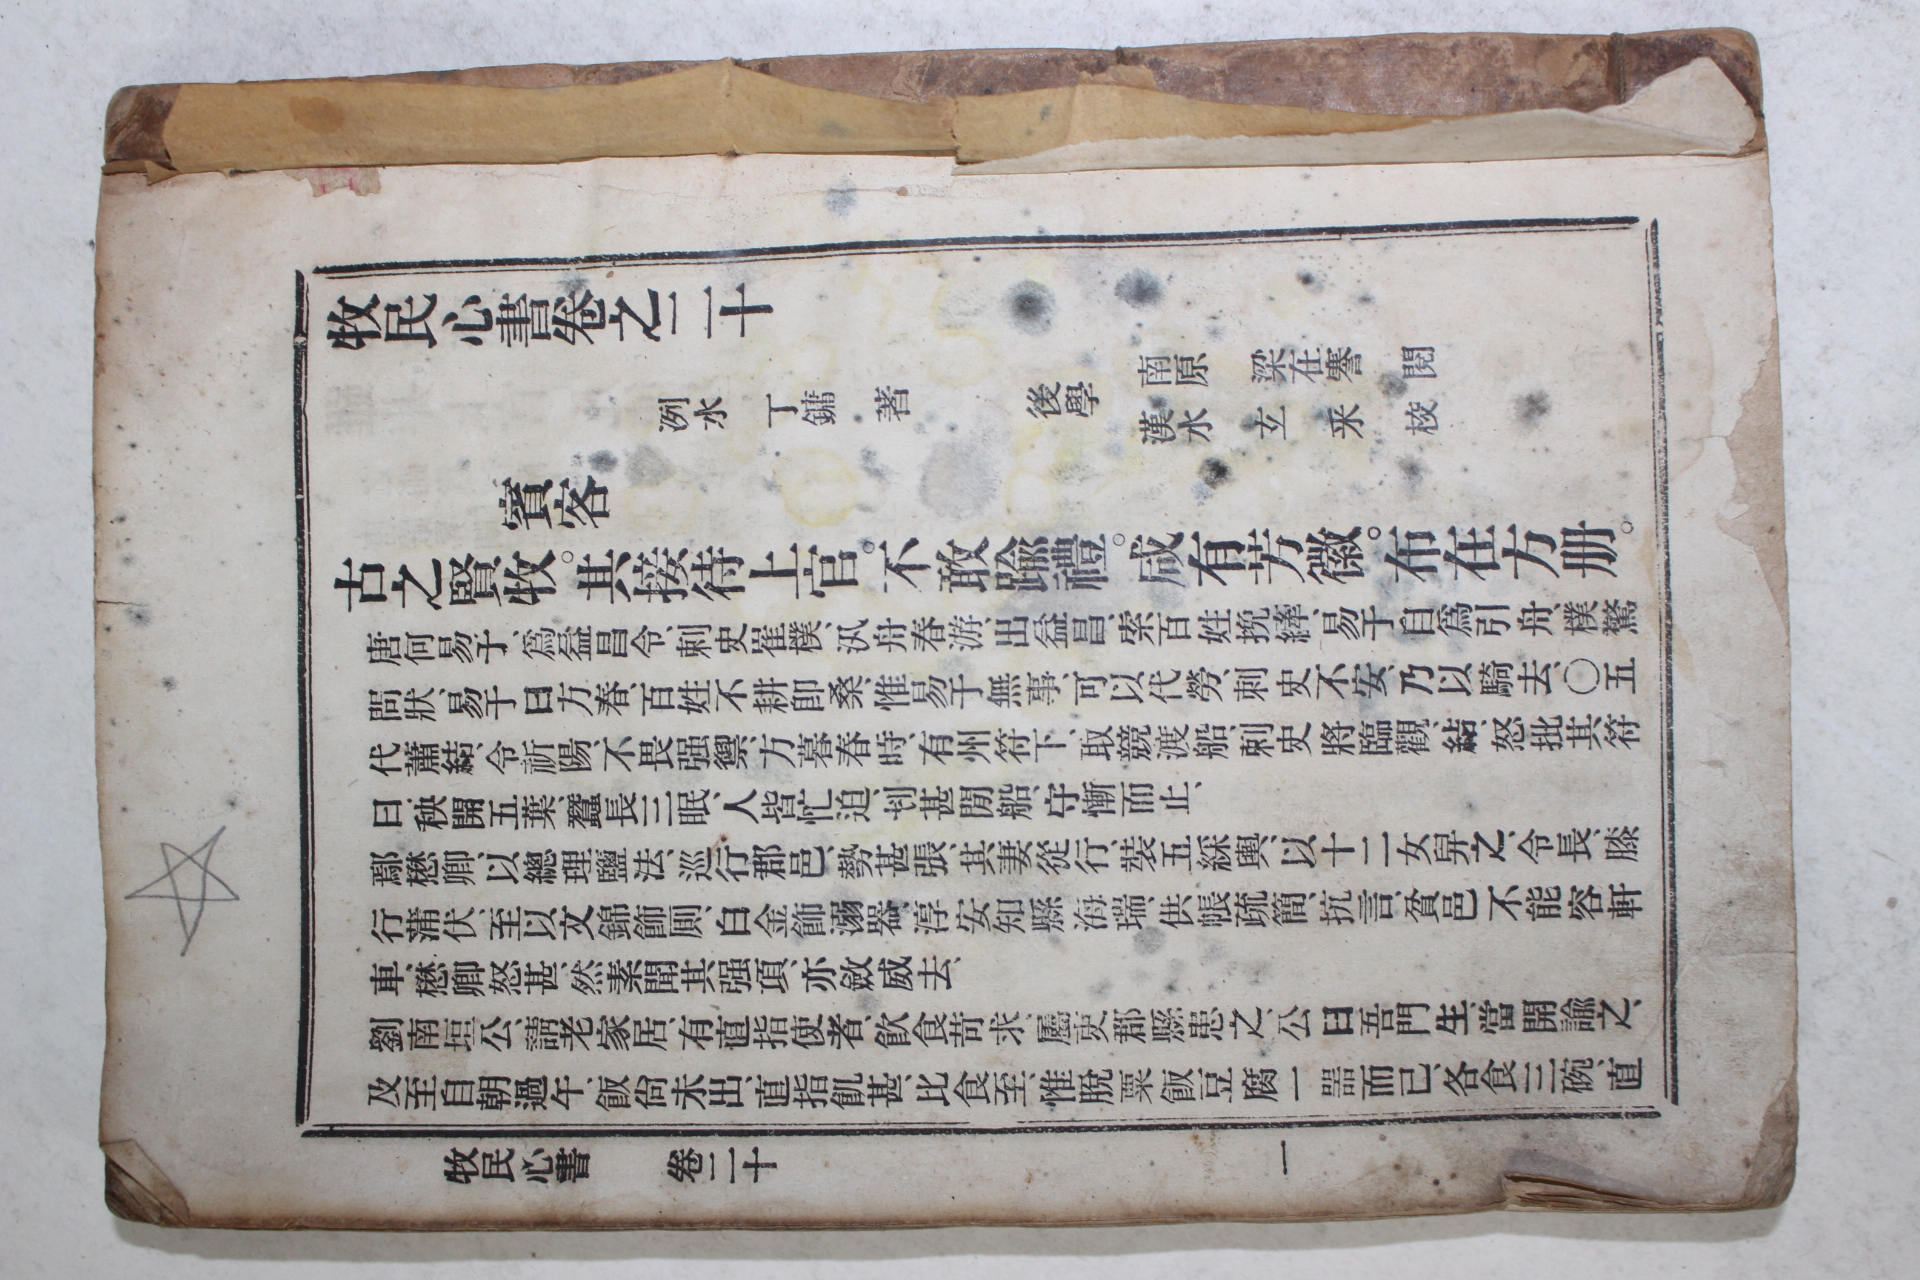 牧民心書卷之二十
洌水 丁鏞 著
後學
南原 梁在謇 閱
漢水 玄 采 校
賓客
古之賢牧。其接待上官。不敢踰禮。咸有芳徽。布在方册。
唐何易于、爲益昌令、刺史崔樸、汎舟春游、出益昌、索百姓挽繂、易于自爲引舟、樸驚
問狀、易于曰方春、百姓不耕卽桑、惟易于無事、可以代勞、刺史不安、乃以騎去、〇五
代蕭結、令祈陽、不畏强禦、方暮春時、有州符下、取競渡船、刺史將臨觀、結怒批其符
曰、秧開五葉、蠶長三眠、人皆忙迫、刬甚閒船、守慚而止、
鄢懋卿、以總理鹽法、巡行郡邑、勢甚張、其妻從行、裝五綵輿、以十二女舁之、令長膝
行蒲伏、至以文錦飾厠、白金飾溺器、淳安知縣海瑞、供帳疏簡、抗言貧邑不能容軒
車、懋卿怒甚、然素聞其强項、亦斂威去、
劉南垣公、請老家居、有直指使者、飮食苛求、屬吏郡縣患之、公曰吾門生、當開諭之、
及至自朝過午、飯尙未出、直指飢甚、比食至、惟脫粟飯豆腐一器而已、各食三碗、直
牧民心書 卷二十 一